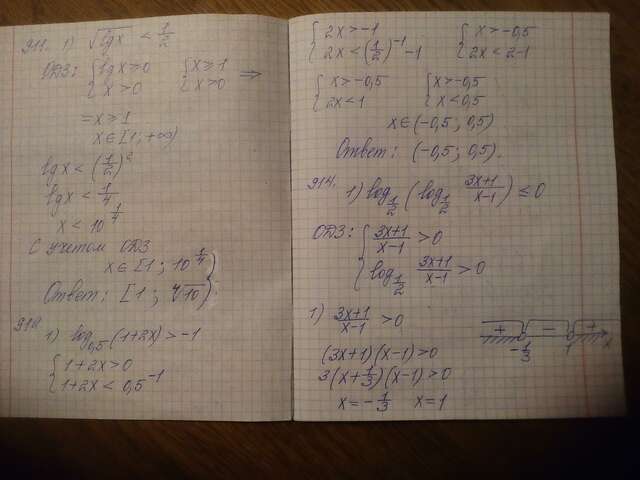 911. 1) √lg x < 1/2
ОДЗ: { lg x ≥ 0 { x ≥ 1 ⇒
x > 0 x > 0
= x ≥ 1
x ∈ [1; +∞)
lg x < (1/2)²
lg x < 1/4
x < 10^(1/4)
С учетом ОДЗ
x ∈ [1; 10^(1/4))
Ответ: [1; ⁴√10).
1) log₀,₅(1+2x) > -1
{ 1+2x > 0
1+2x < 0,5⁻¹
{ 2x > -1 { x > -0,5
2x < (1/2)⁻¹ - 1 2x < 2-1
{ x > -0,5 { x > -0,5
2x < 1 x < 0,5
x ∈ (-0,5; 0,5)
Ответ: (-0,5; 0,5).
914. 1) log_(1/2) (log_(1/2) (3x+1)/(x-1)) ≤ 0
ОДЗ: { (3x+1)/(x-1) > 0
log_(1/2) (3x+1)/(x-1) > 0
1) (3x+1)/(x-1) > 0
+ - +
-1/3 1 x
(3x+1)(x-1) > 0
3(x+1/3)(x-1) > 0
x = -1/3 x = 1